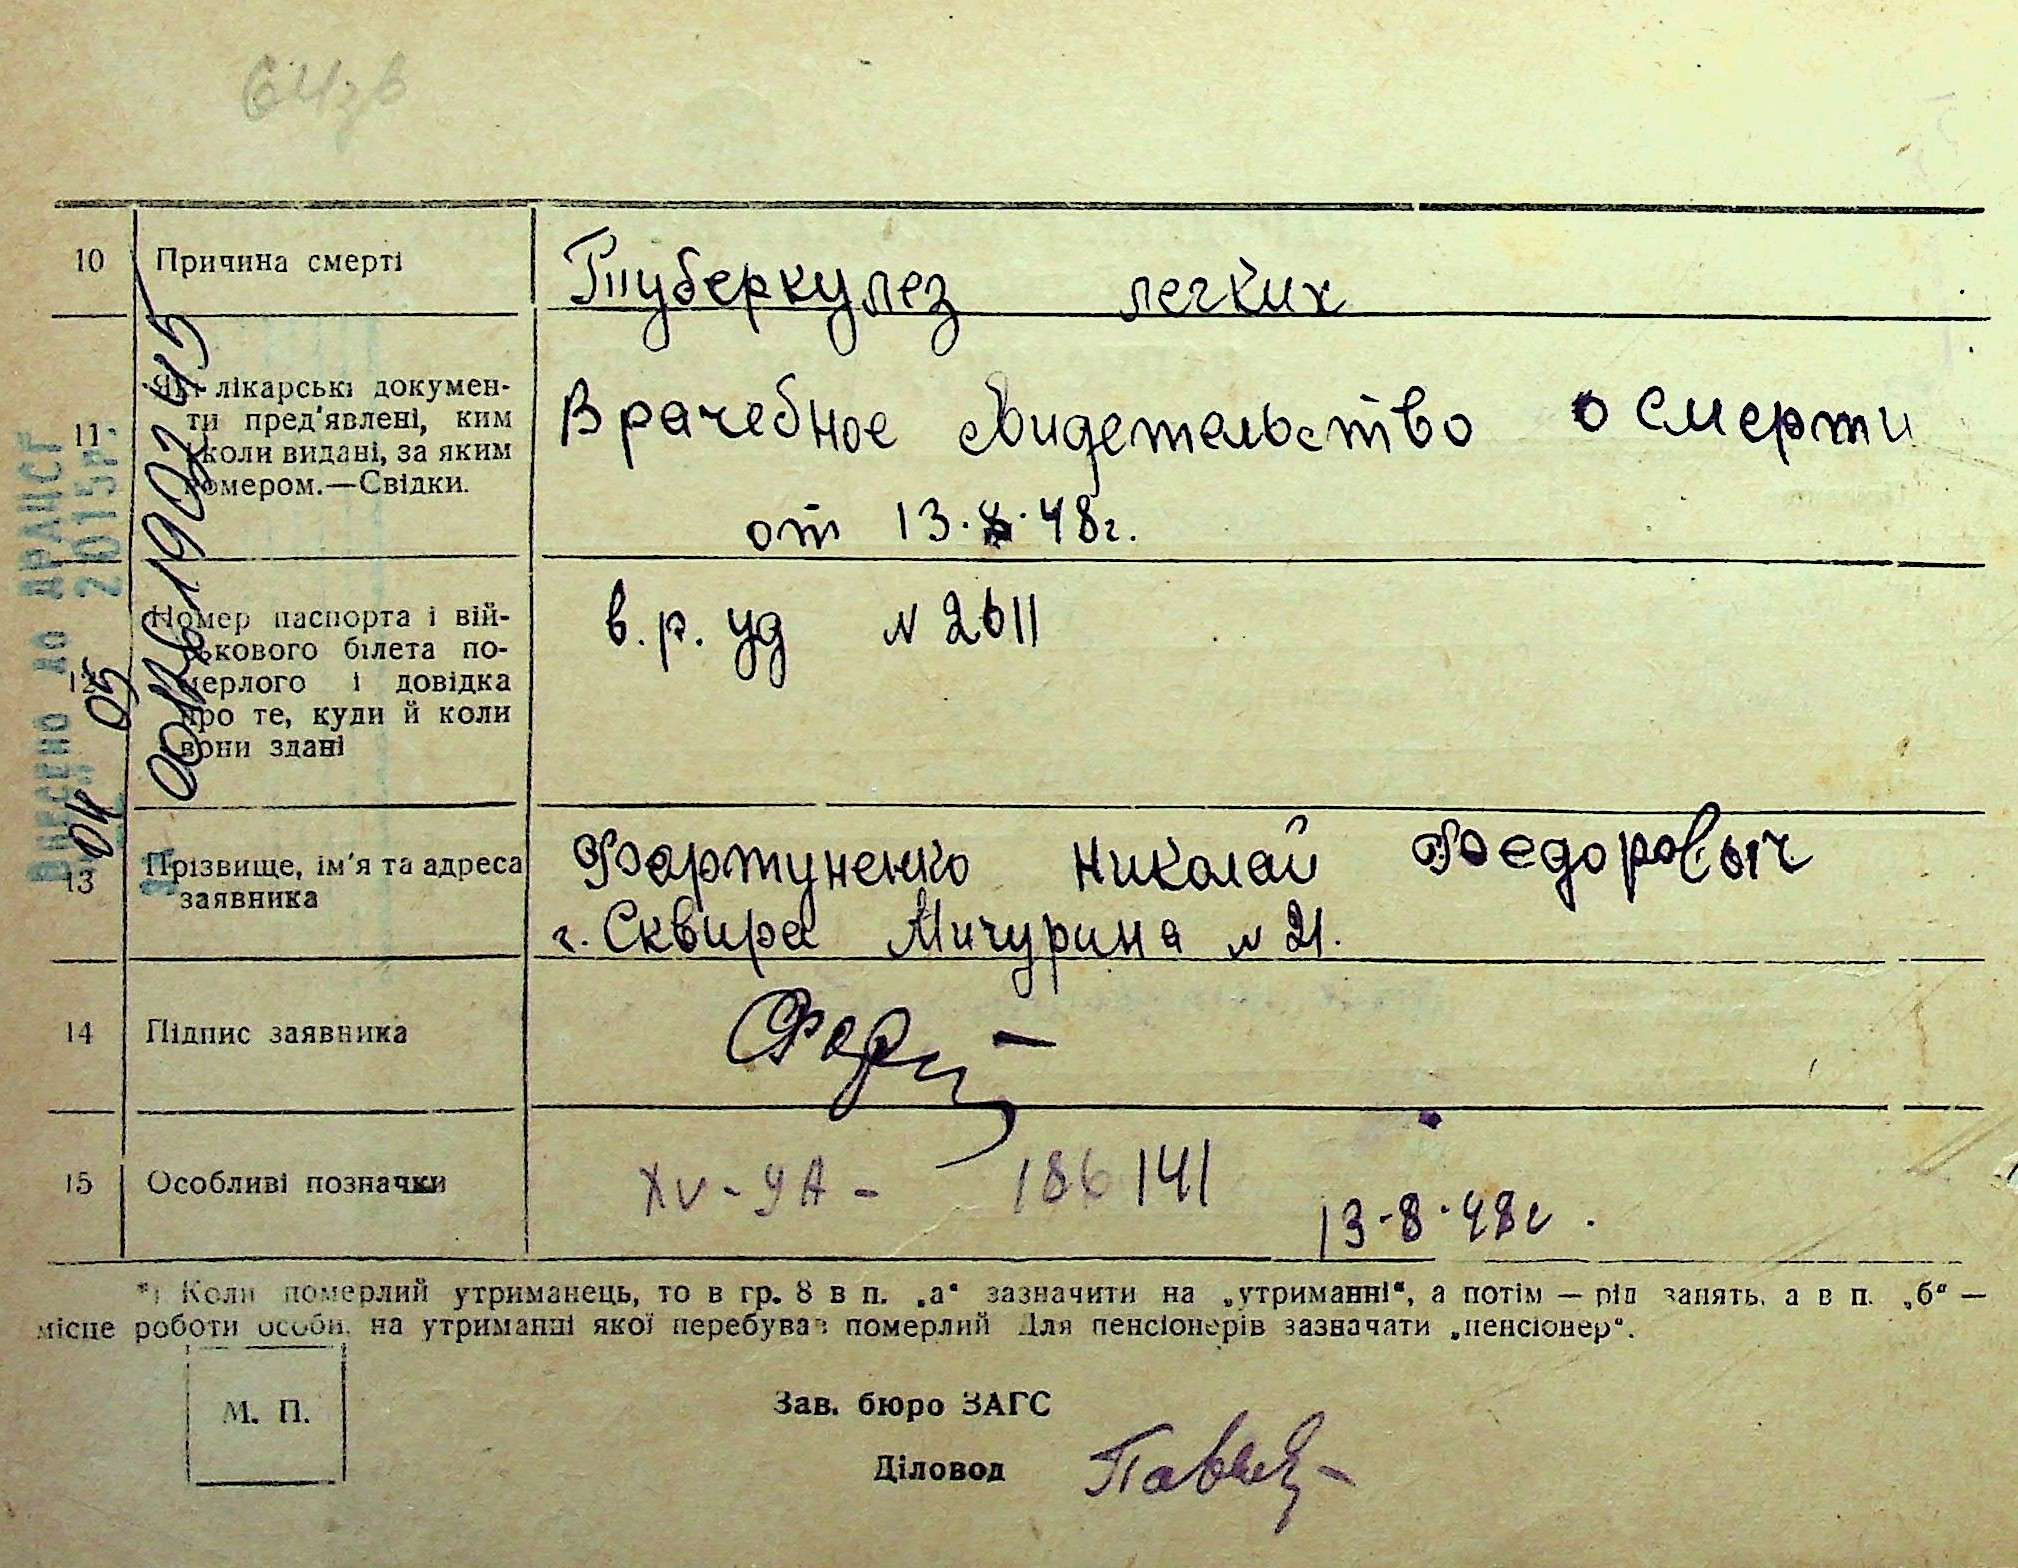 10 Причина смерті Туберкулез легких
11 Які лікарські докумен-
ти пред'явлені, ким
і коли видані, за яким
номером.—Свідки.
Врачебное свидетельство о смерти
от 13.8.48г.
12 Номер паспорта і вій-
ськового білета по-
мерлого і довідка
про те, куди й коли
вони здані
в.р. уд № 2611
13 Прізвище, ім'я та адреса
заявника
Фартуненко Николай Федорович
г. Сквира Мичурина № 21.
14 Підпис заявника
15 Особливі позначки XV-УА- 186141
13-8-48г.
*) Коли померлий утриманець, то в гр. 8 в п. „а“ зазначити на „утриманні“, а потім — рід занять, а в п. „б“ —
місце роботи особи, на утриманні якої перебував померлий Для пенсіонерів зазначати „пенсіонер“.
М. П.
Зав. бюро ЗАГС
Діловод
Внесено до ДРАЦСГ
04 05 2015р.